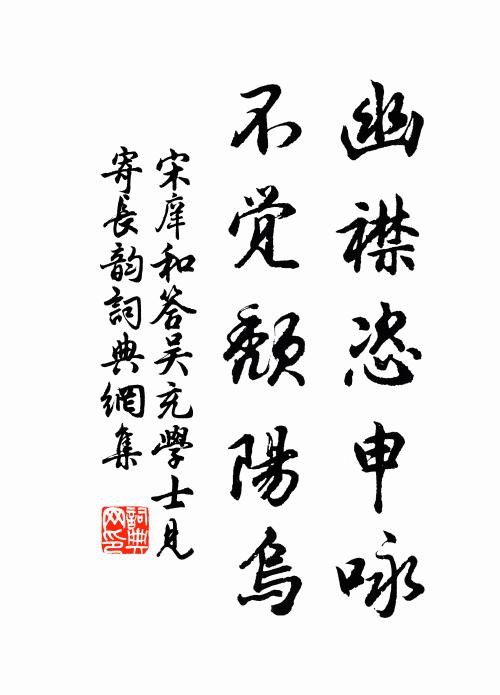 幽襟恣申咏
不覚頽陽烏
宋庠和答吴充學士見
寄長韵詞典網集
詞典
网印